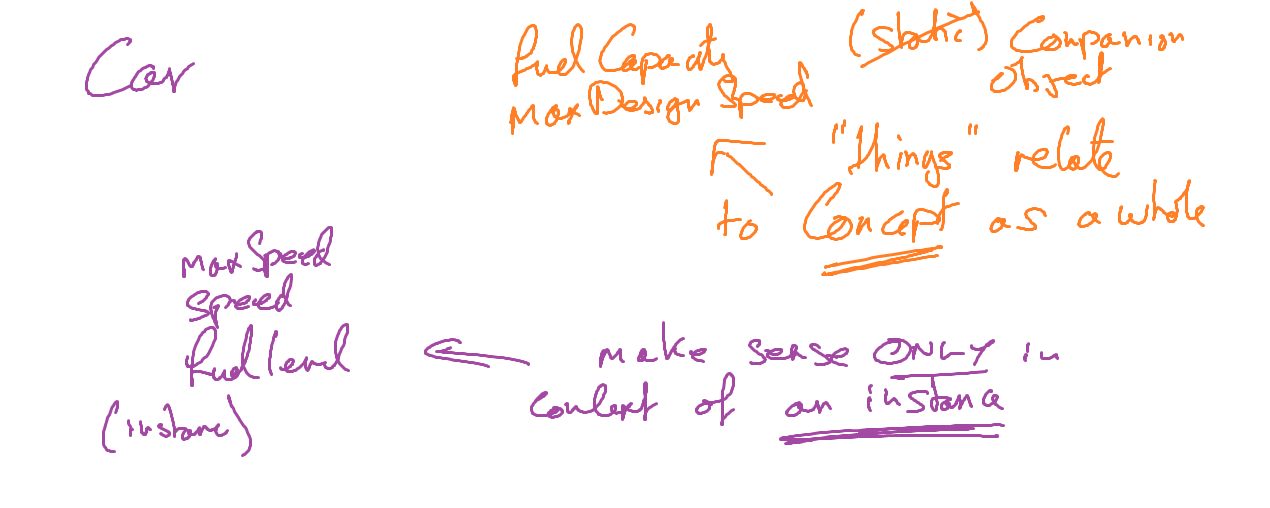 Car
Fuel Capacity
Max Design Speed
(static) Companion
Object
"things" relate
to Concept as a whole
Max Speed
Speed
Fuel level
(instance)
make sense ONLY in
context of an instance